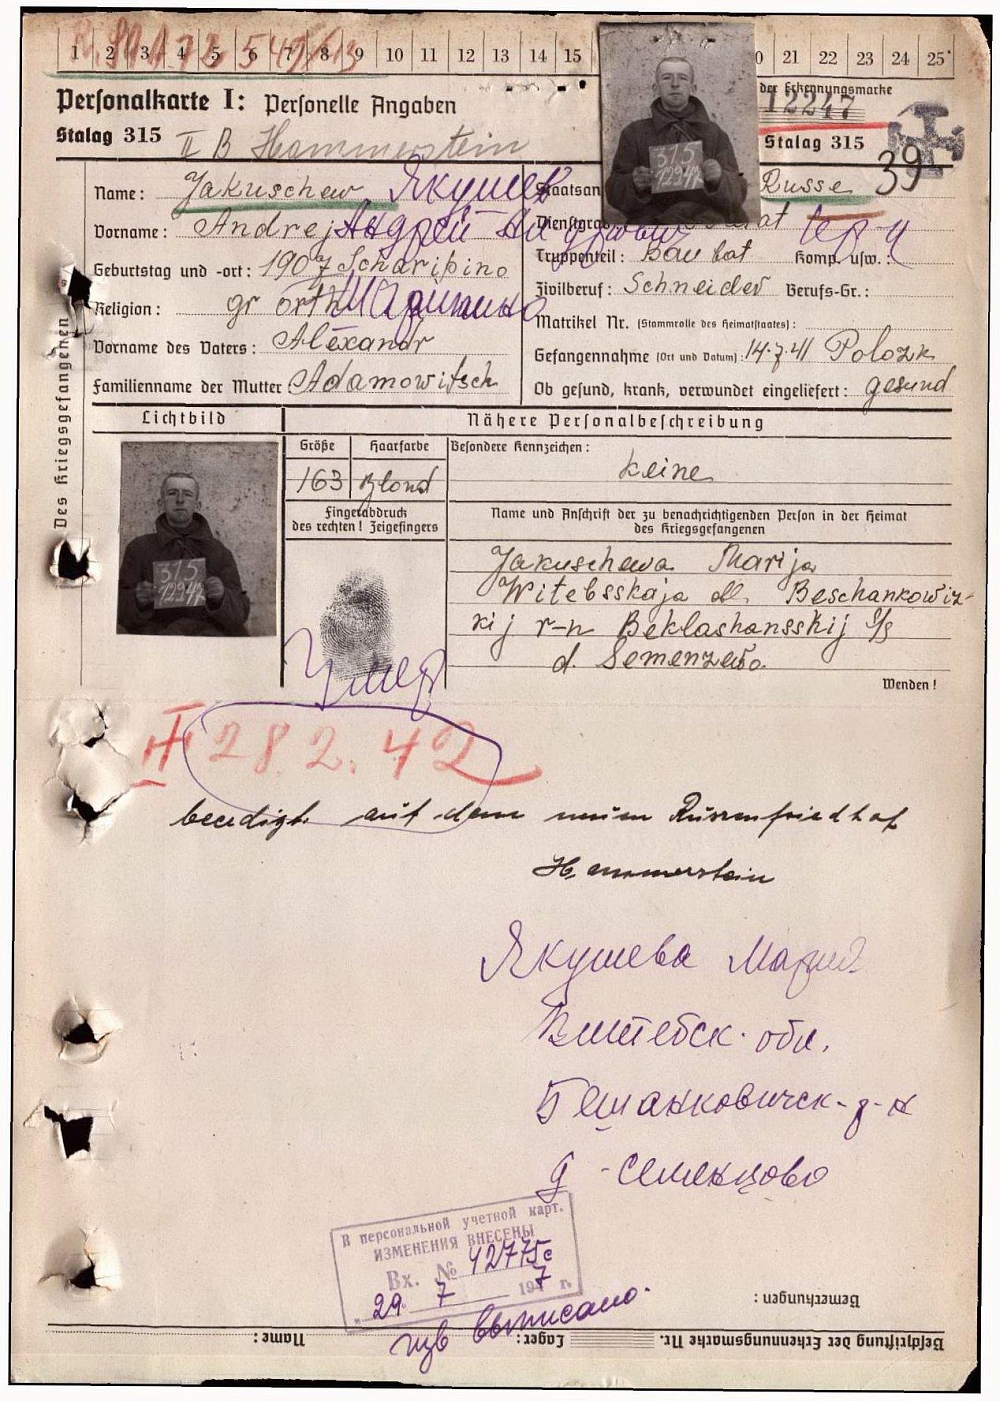 1 2 3 4 5 6 7 8 9 10 11 12 13 14 15 20 21 22 23 24 25
Personalkarte I: Personelle Angaben
der Erkennungsmarke
12247
Stalag 315 II B Hammerstein
Stalag 315
39
Name: Jakuschew Якушев
Staatsan Russe
Vorname: Andrej Андрей
Dienstgra
Geburtstag und -ort: 1907 Scharipino
Truppenteil: Bau bat Komp. usw.:
Religion: gr orth
Zivilberuf: Schneider Berufs-Gr.:
Matrikel Nr. (Stammrolle des Heimatstaates):
Vorname des Vaters: Alexandr
Gefangennahme (Ort und Datum): 14.7.41 Polozk
Familienname der Mutter Adamowitsch
Ob gesund, krank, verwundet eingeliefert: gesund
Des Kriegsgefangenen
Lichtbild
Nähere Personalbeschreibung
Größe Haarfarbe Besondere Kennzeichen:
163 Blond keine
Fingerabdruck
des rechten! Zeigefingers
Name und Anschrift der zu benachrichtigenden Person in der Heimat
des Kriegsgefangenen
Jakuschewa Marija
Witebsskaja obl. Beschankowiz-
kij r-n Beklashansskij s/s
d. Semenzewo
315
12247
Умер
Wenden!
28 2. 42
beerdigt auf dem neuen Russenfriedhof
Hammerstein
Якушева Мария
Витебск. обл.
Бешанковичск. р-н
д - Семенцово
В персональной учетной карт.
ИЗМЕНЕНИЯ ВНЕСЕНЫ
Вх. № 42775с
29. 7 1947 г.
изв выписано.
Bemerkungen:
Beschriftung der Erkennungsmarke Nr. Lager: Name: